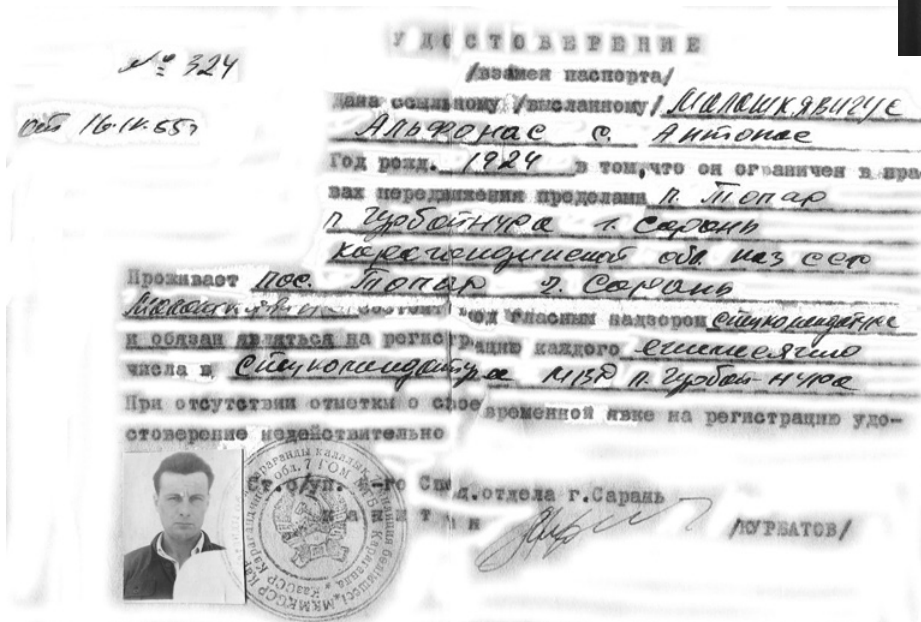 УДОСТОВЕРЕНИЕ
№ 324
/взамен паспорта/
Дана ссыльному /высланному/ Малошкявичус
от 16.IV.55г
Альфонас с. Антонас
Год рожд. 1924 в том, что он ограничен в пра
вах передвижения пределами п. Топар
п. Чурбайнура г. Сарань
Карагандинской обл. Каз ССР
Проживает пос. Топар г. Сарань
состоит под гласным надзором спецкомендатуре
и обязан являться на регистрацию каждого ежемесячно
числа в Спецкомендатуре МВД п. Чурбай-Нура
При отсутствии отметки о своевременной явке на регистрацию удо-
стоверение недействительно
Ст. о/уп. -го Спец.отдела г.Сарань
капитан
/КУРБАТОВ/